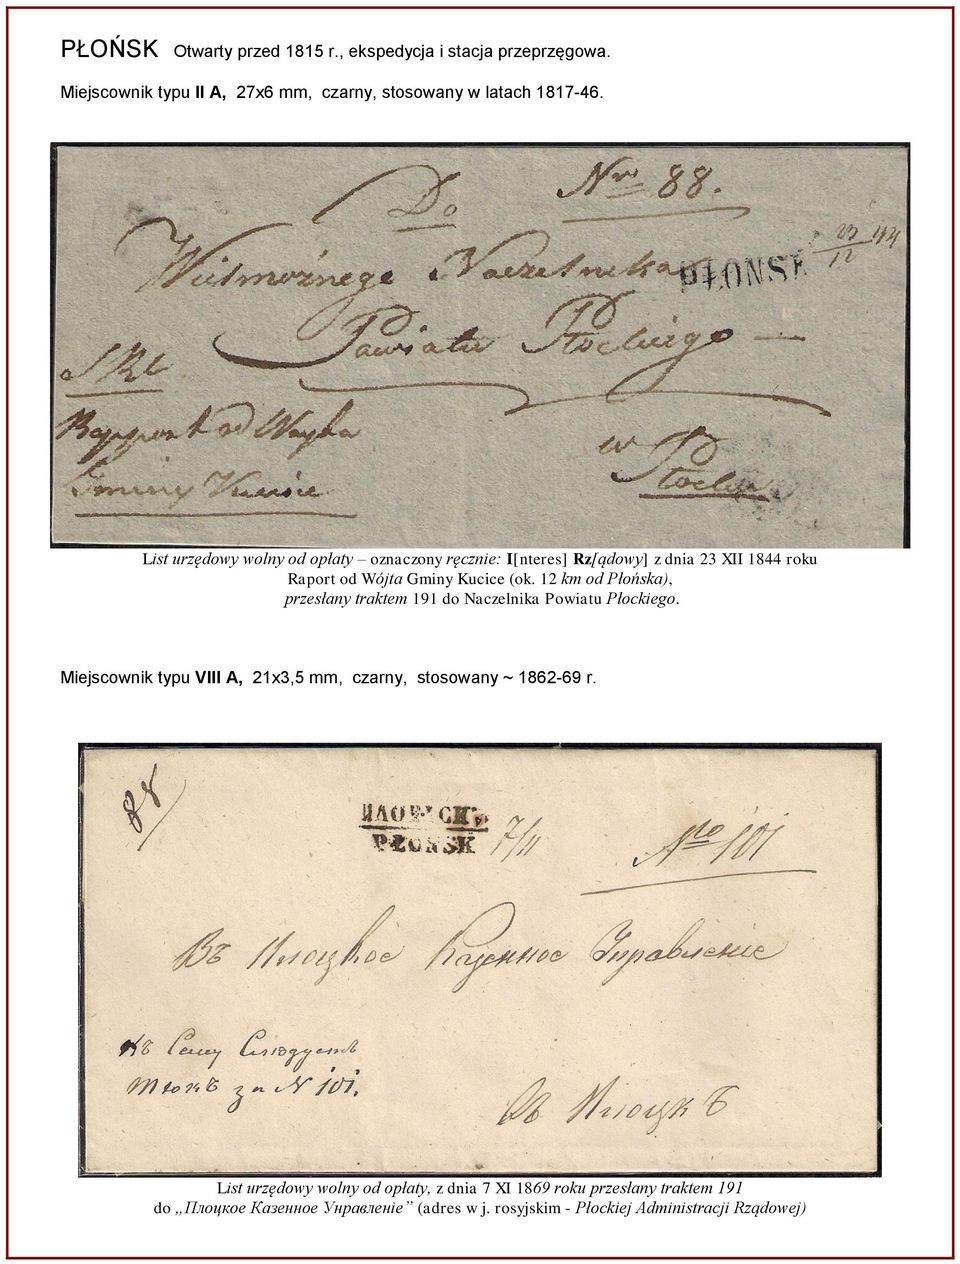 PŁOŃSK Otwarty przed 1815 r., ekspedycja i stacja przeprzęgowa.
Miejscownik typu II A, 27x6 mm, czarny, stosowany w latach 1817-46.
Do Nro 88.
Wielmożnego Naczelnika PŁOŃSK 23/12 44
Powiatu Płockiego
Rapport od Woyta
Gminy Kucice
w Płocku
List urzędowy wolny od opłaty – oznaczony ręcznie: I[nteres] Rz[ądowy] z dnia 23 XII 1844 roku
Raport od Wójta Gminy Kucice (ok. 12 km od Płońska),
przesłany traktem 191 do Naczelnika Powiatu Płockiego.
Miejscownik typu VIII A, 21x3,5 mm, czarny, stosowany ~ 1862-69 r.
88
ПЛОНСКЪ
PŁOŃSK 7/11 No 101
Въ Плоцкое Казенное Управленіе
Къ Сему Слѣдуетъ
тюкъ за N 101.
Въ Плоцкъ
List urzędowy wolny od opłaty, z dnia 7 XI 1869 roku przesłany traktem 191
do „Плоцкое Казенное Унравленіе” (adres w j. rosyjskim - Płockiej Administracji Rządowej)